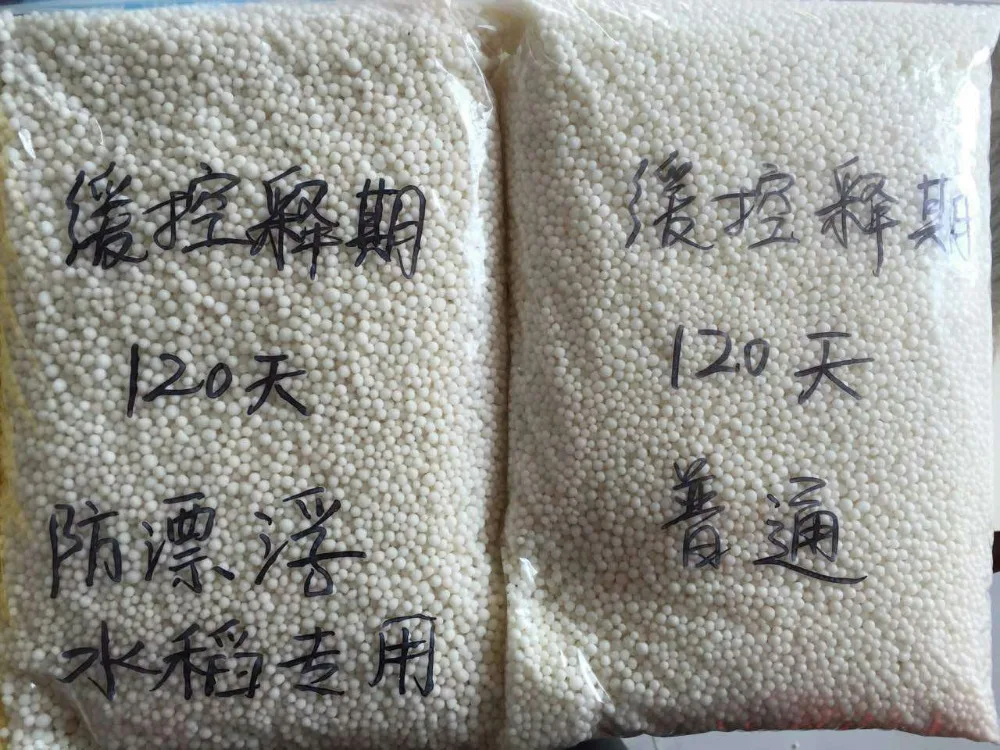 缓控释期
120天
防漂浮
水稻专用
缓控释期
120天
普通